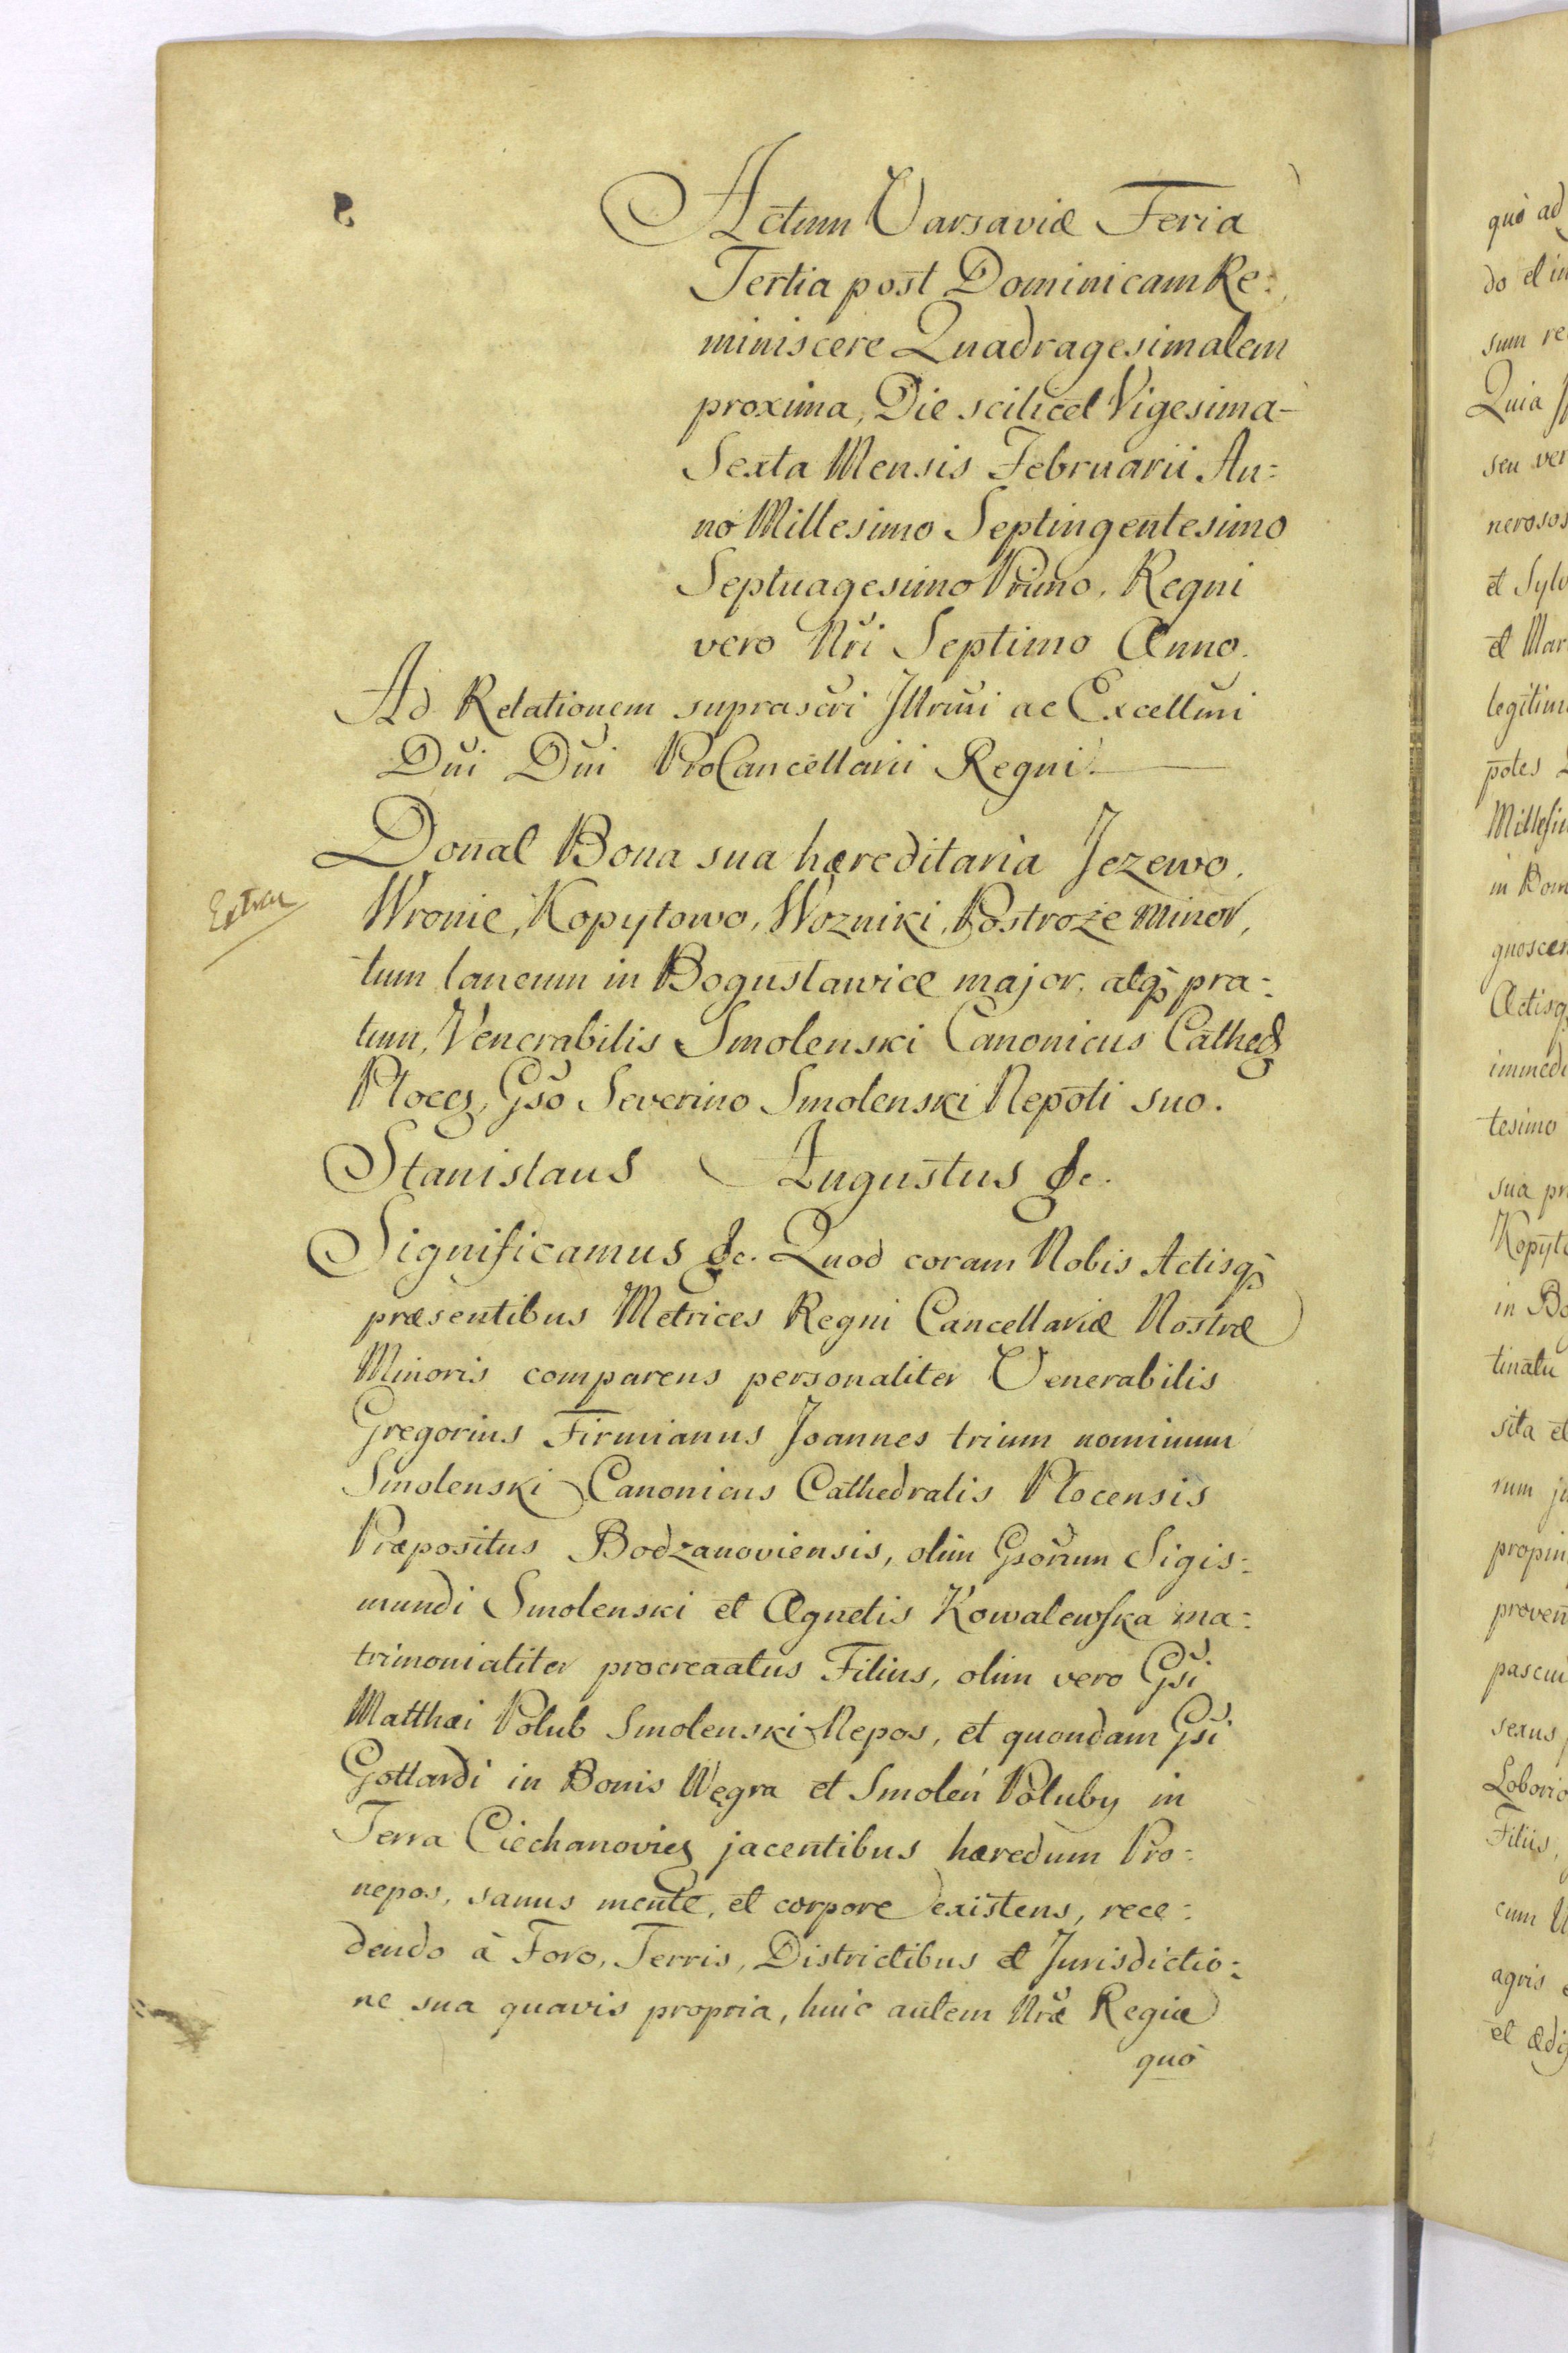 Actum Varsaviæ Feria
Tertia post Dominicam Re:
miniscere Quadragesimalem
proxima, Die scilicet Vigesima-
Sexta Mensis Februarii An:
no Millesimo Septingentesimo
Septuagesimo Primo. Regni
vero Nri Septimo Anno.
Ad Relationem suprascri Illrmi ac Excellmi
Dni Dni ProCancellarii Regni.
Donat Bona sua hæreditaria Jezewo.
Extrac
Wronie, Kopytowo, Wozniki, Rostroże minor,
tum laneum in Bogusławice major. atq; pra:
tum, Venerabilis Smolenski Canonicus Cathed
Ploces, Gso Severino Smolenski Nepoti suo.
Stanislaus Augustus &c.
Significamus &c. Quod coram Nobis Actisq;
præsentibus Metrices Regni Cancellariæ Nostræ
Minoris comparens personaliter Venerabilis
Gregorius Firmianus Joannes trium nominum
Smolenski Canonicus Cathedralis Plocensis
Præpositus Bodzanoviensis, olim Gsorum Sigis:
mundi Smolenski et Agnetis Kowalewska ma:
trimonialiter procreaatus Filius, olim vero Gsi
Matthæi Polub Smolenski Nepos, et quondam Gsi
Gottardi in Bonis Węgra et Smoleń Poluby in
Terra Ciechanovies jacentibus hæredum Pro:
nepos, sanus mente, et corpore existens, rece:
dendo à Foro, Terris, Districtibus et Jurisdictio:
ne sua quavis propria, huic autem Nræ Regiæ
quò
quò ad
do et in
sum re
Quia
seu ver
nerosos
et Sylv
et Mar
legitim
potes
Millesi
in Bon
gnoscen
Actisq
immedi
tesimo
sua pr
Kopyto
in Bo
tinatu
sita et
rum ju
propin
proven
pascui
sexus
Lobori
Filiis,
cum
agris e
et ædi